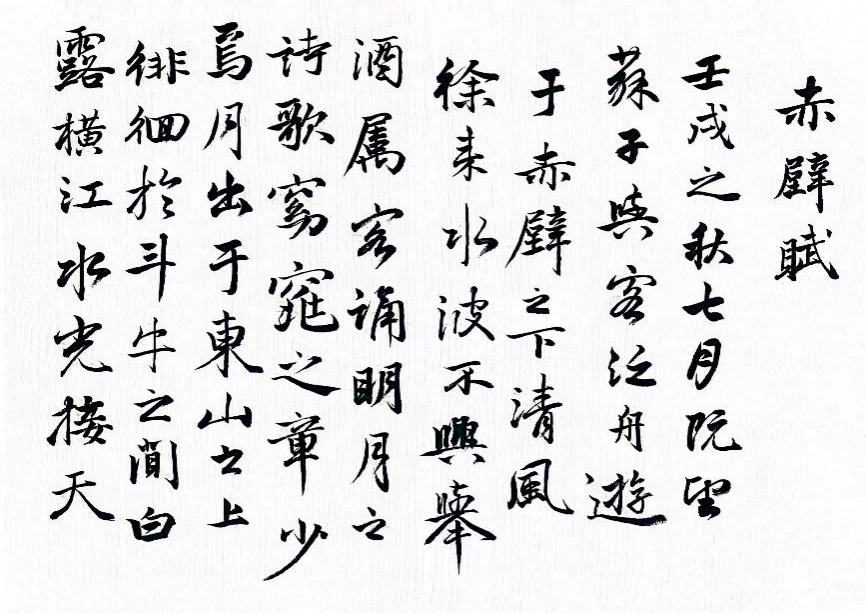 赤壁賦
壬戌之秋七月既望
蘇子與客泛舟遊
于赤壁之下清風
徐来水波不興舉
酒属客誦明月之
詩歌窈窕之章少
焉月出于東山之上
徘徊於斗牛之間白
露橫江水光接天